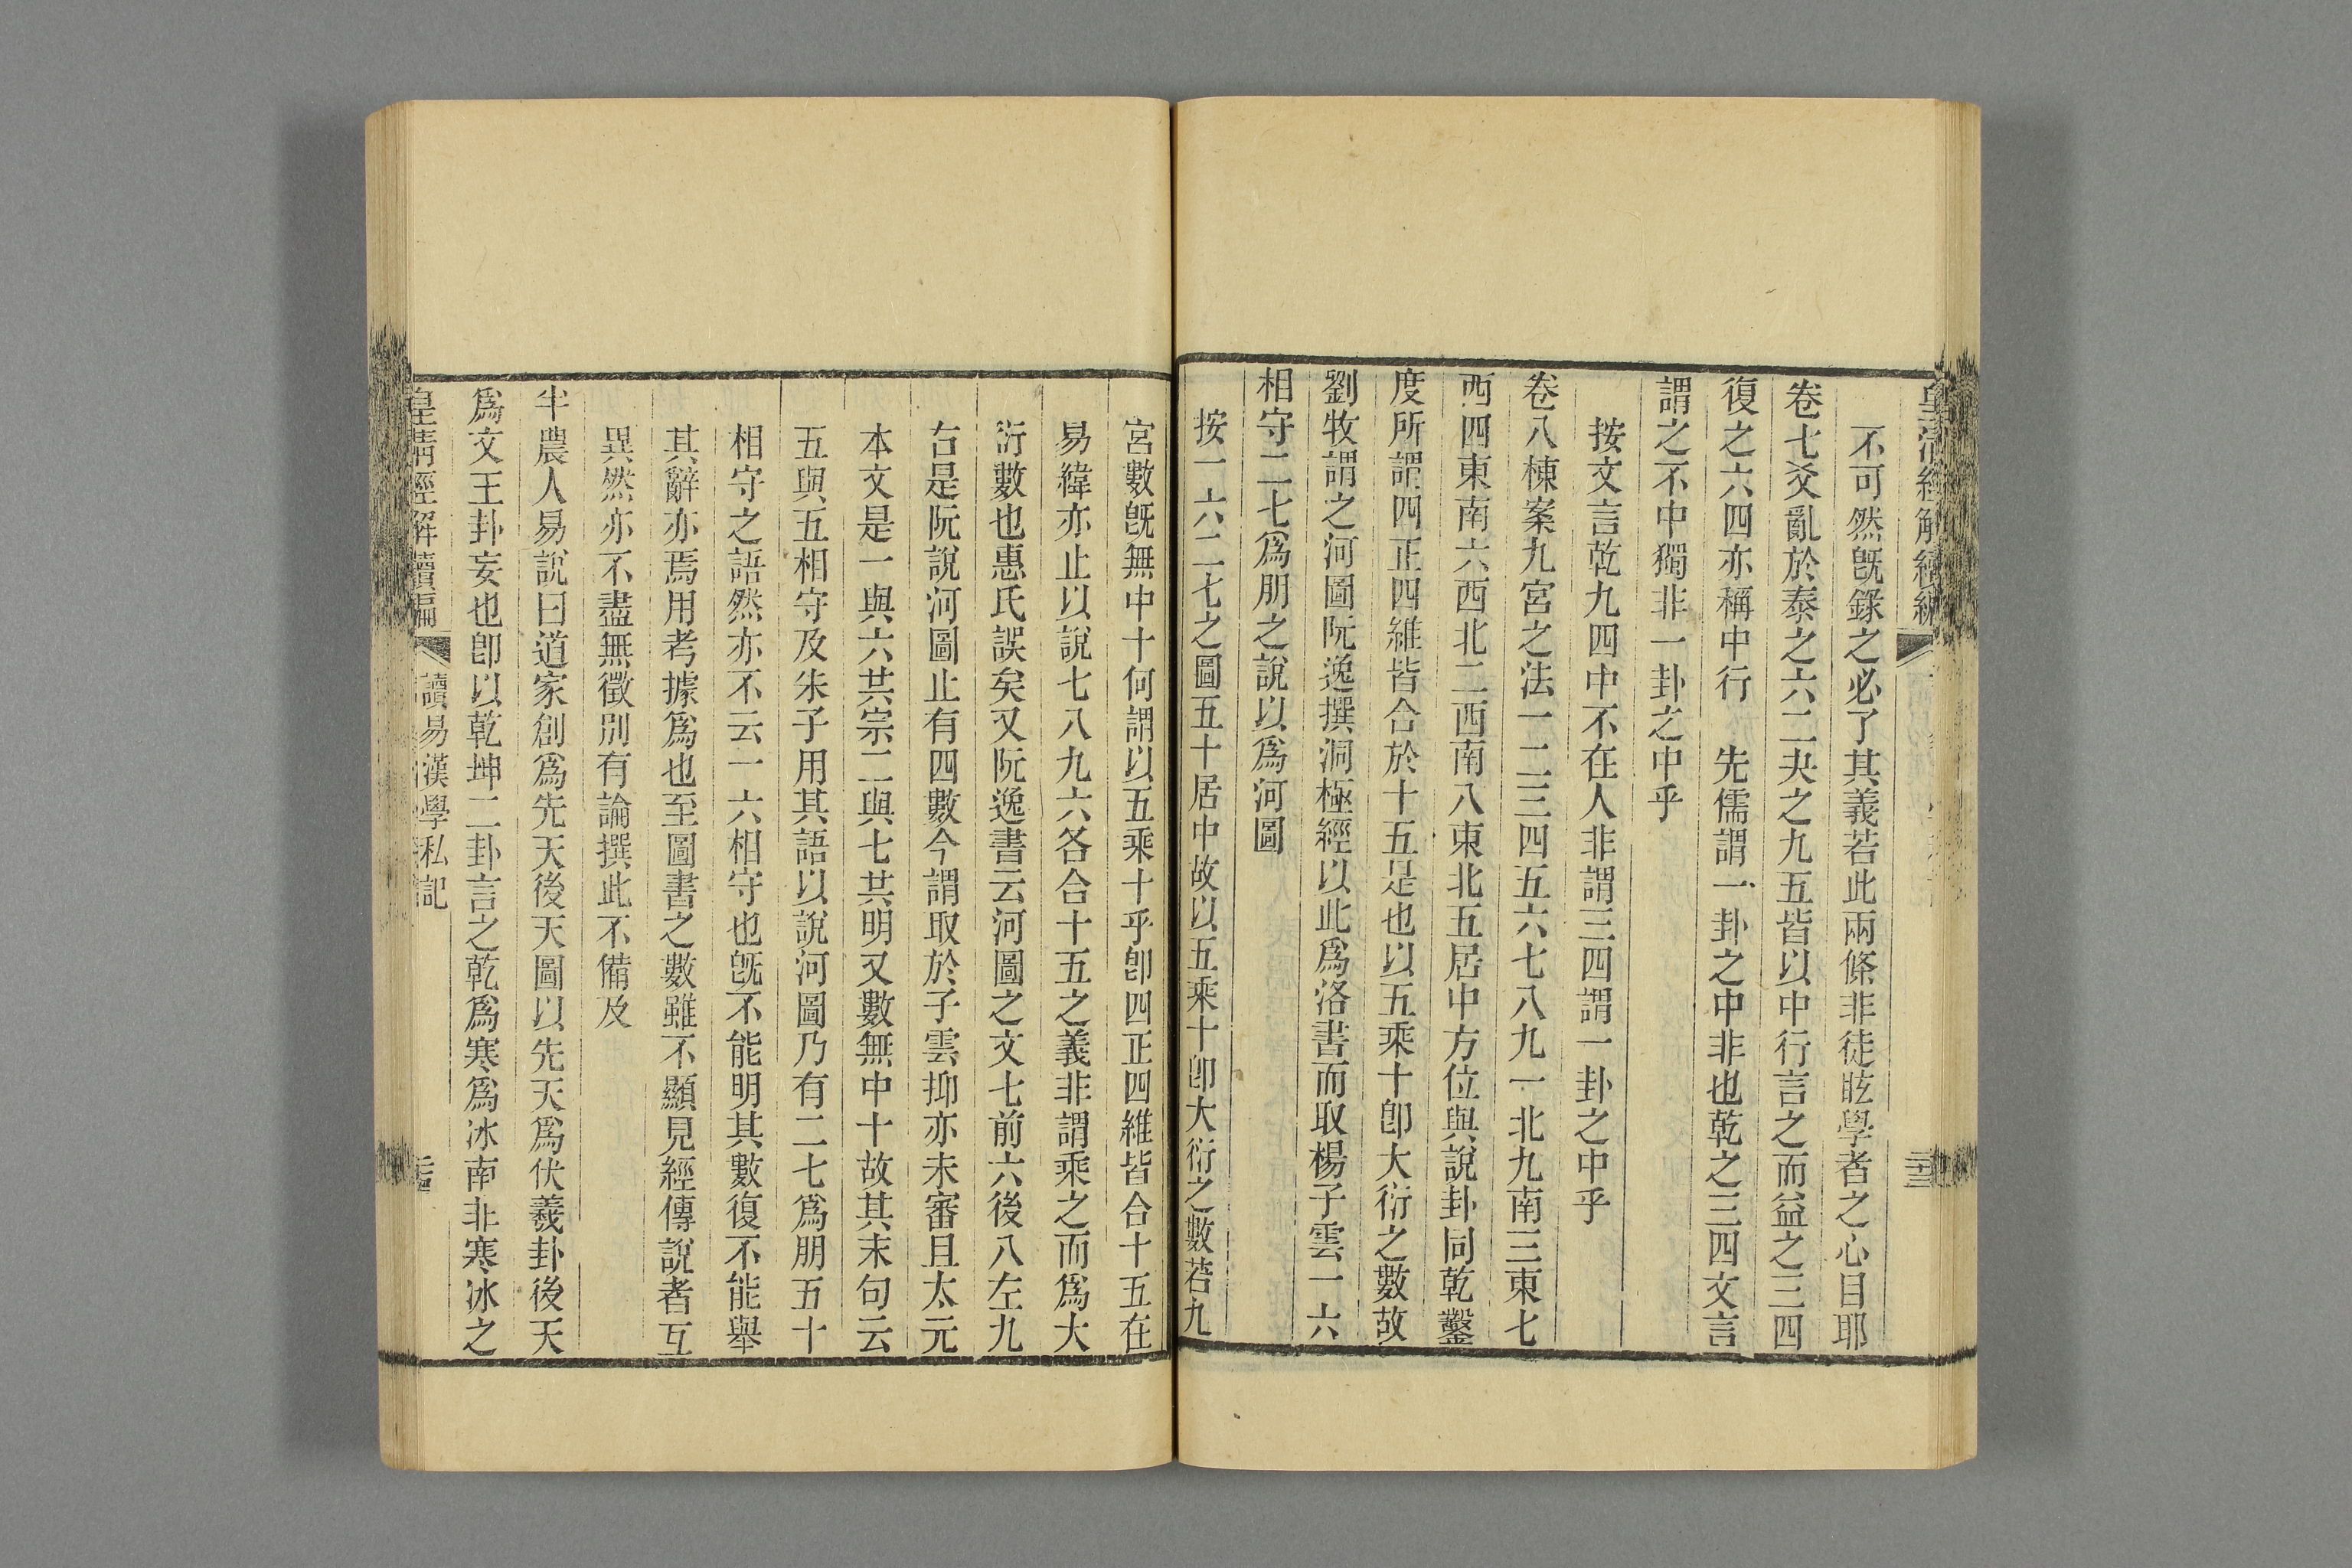 皇清經解續編
不可然旣錄之必了其義若此兩條非徒眩學者之心目耶
卷七爻亂於泰之六二夬之九五皆以中行言之而益之三四
復之六四亦稱中行 先儒謂一卦之中非也乾之三四文言
謂之不中獨非一卦之中乎
按文言乾九四中不在人非謂三四謂一卦之中乎
卷八棟案九宮之法一二三四五六七八九一北九南三東七
西四東南六西北二西南八東北五居中方位與說卦同乾鑿
度所謂四正四維皆合於十五是也以五乘十卽大衍之數故
劉牧謂之河圖阮逸撰洞極經以此爲洛書而取楊子雲一六
相守二七爲朋之說以爲河圖
按一六二七之圖五十居中故以五乘十卽大衍之數若九
宮數旣無中十何謂以五乘十乎卽四正四維皆合十五在
易緯亦止以說七八九六各合十五之義非謂乘之而爲大
衍數也惠氏誤矣又阮逸書云河圖之文七前六後八左九
右是阮說河圖止有四數今謂取於子雲抑亦未審且太元
本文是一與六共宗二與七共明又數無中十故其末句云
五與五相守及朱子用其語以說河圖乃有二七爲朋五十
相守之語然亦不云一六相守也旣不能明其數復不能舉
其辭亦焉用考據爲也至圖書之數雖不顯見經傳說者互
異然亦不盡無徵別有論撰此不備及
半農人易說曰道家創爲先天後天圖以先天爲伏羲卦後天
爲文王卦妄也卽以乾坤二卦言之乾爲寒爲冰南非寒冰之
皇清經解續編 讀易漢學私記